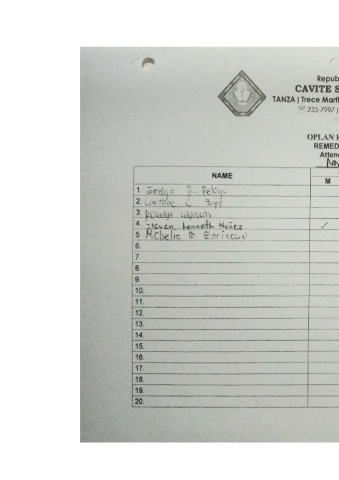 Repub
CAVITE S
TANZA | Trece Marti
☏ 235-7997 |
OPLAN
REMED
Atten
NAME M
1. B. Pelayo
2. C.
3.
4. Kenneth Nuñez /
5. Michelle D. Enriquez
6.
7.
8.
9
10.
11.
12.
13.
14.
15.
16.
17.
18.
19.
20.